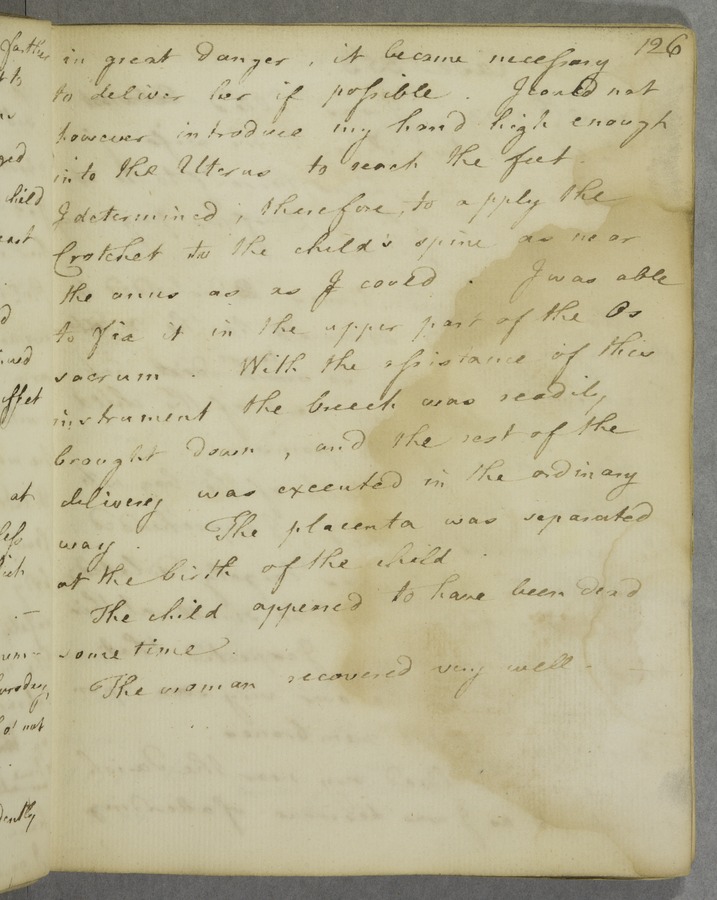 126
in great danger, it became necessary
to deliver her if possible. I could not
however introduce my hand high enough
into the Uterus to reach the feet
I determined, therefore, to apply the
Crotchet to the child's spine as near
the anus as as I could. I was able
to fix it in the upper part of the Os
sacrum. With the assistance of this
instrument the breech was readily
brought down, and the rest of the
delivery was executed in the ordinary
way. The placenta was separated
at the birth of the child.
The child appeared to have been dead
some time.
The woman recovered very well.